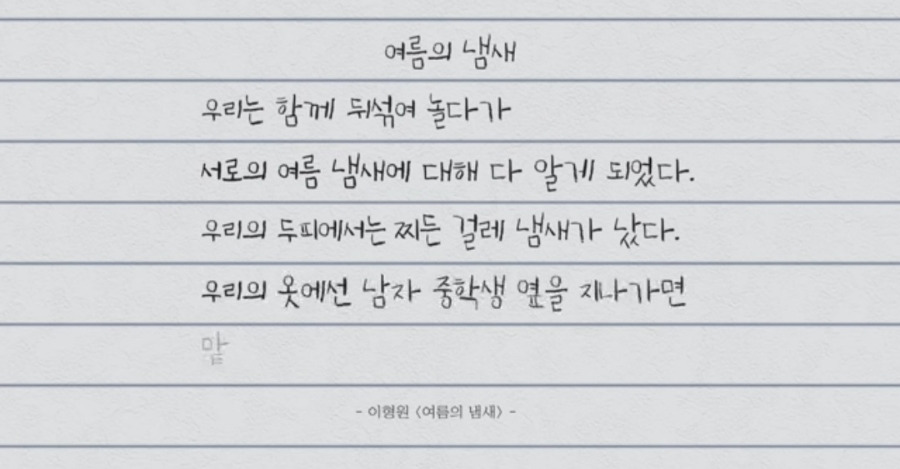 여름의 냄새
우리는 함께 뒤섞여 놀다가
서로의 여름 냄새에 대해 다 알게 되었다.
우리의 두피에서는 찌든 걸레 냄새가 났다.
우리의 옷에선 남자 중학생 옆을 지나가면
- 이형원 〈여름의 냄새〉 -